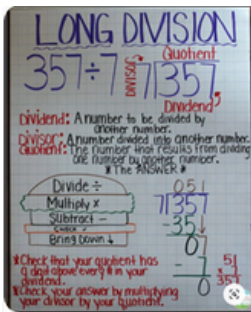 LONG DIVISION
Quotient
357÷7
DIVISOR
7)357
Dividend
Dividend: A number to be divided by
another number.
Divisor: A number divided into another number.
Quotient: The number that results from dividing
one number by another number.
*The ANSWER*
Divide ÷
Multiply x
Subtract -
CHECK ✓
Bring Down ↓
051
7)357
-35↓
07
- 7
0
51
x 7
357
*Check that your quotient has
a digit above every # in your
dividend.
*Check your answer by multiplying
your divisor by your quotient.